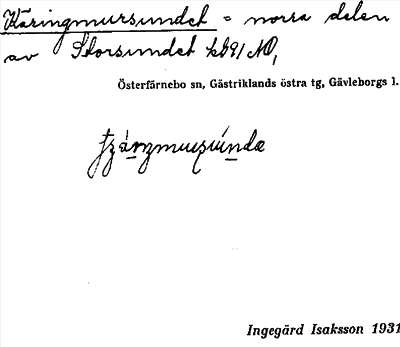 Käringmursundet = norra delen
av Storsundet kb91 NO,
Österfärnebo sn, Gästriklands östra tg, Gävleborgs l.
Ingegärd Isaksson 1931